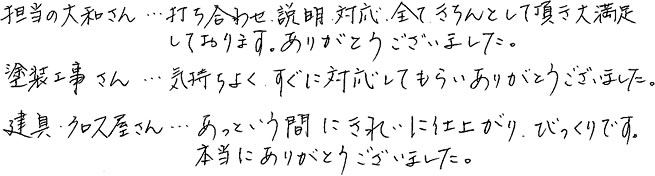 担当の大和さん…打ち合わせ、説明、対応、全て、きちんとして頂き大満足
しております。ありがとうございました。
塗装工事さん…気持ちよく、すぐに対応してもらいありがとうございました。
建具・クロス屋さん…あっという間にきれいに仕上がり、びっくりです。
本当にありがとうございました。